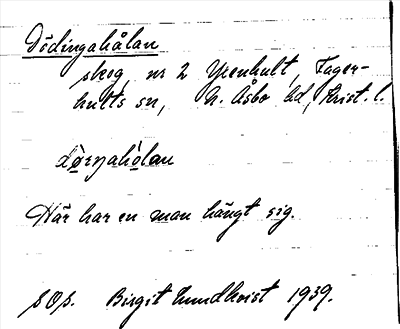 Dödingahålan
skog, nr 2 Yxenhult, Fager-
hults sn, N. Åsbo hd, Krist. l.
Här har en man hängt sig.
sOs. Birgit Lundkvist 1939.